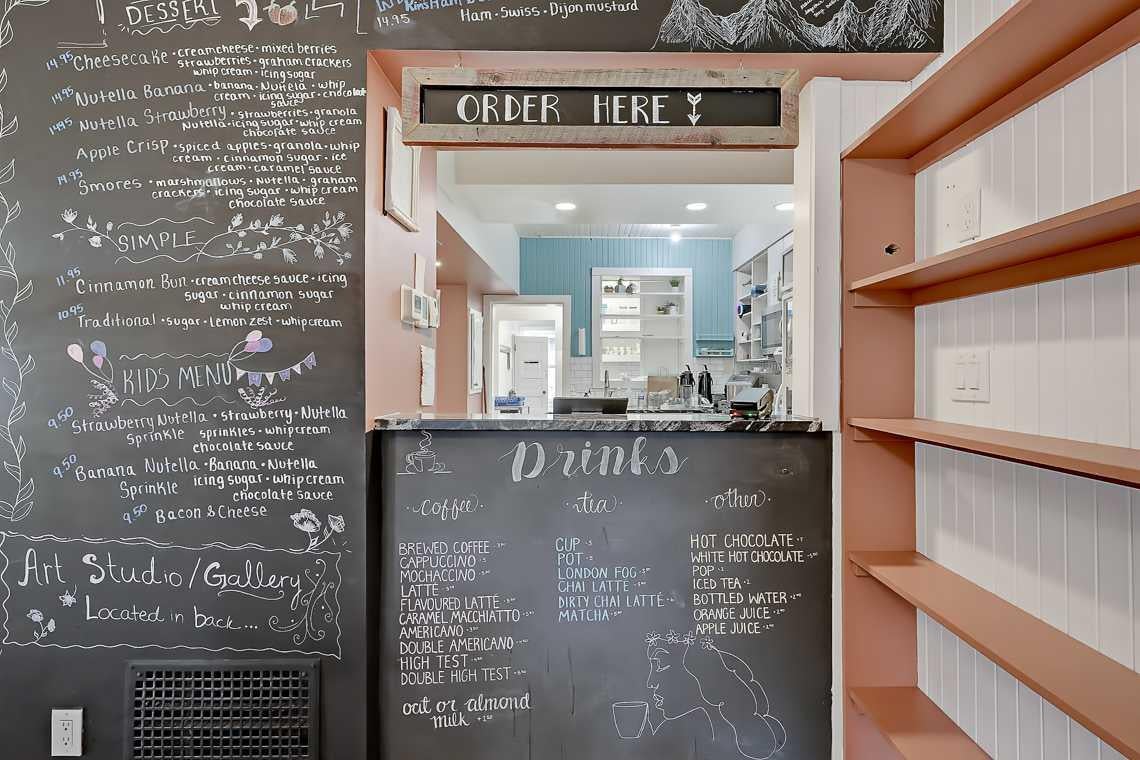 DESSERT
14.95 Ham · Swiss · Dijon mustard
14.95 Cheesecake · creamcheese · mixed berries
strawberries · graham crackers
whip cream · icing sugar
14.95 Nutella Banana · banana · Nutella · whip
cream · icing sugar · chocolate
sauce
14.95 Nutella Strawberry · strawberries · granola
Nutella · icing sugar · whip cream
chocolate sauce
Apple Crisp · spiced apples · granola · whip
cream · cinnamon sugar · ice
cream · caramel sauce
14.95 Smores · marshmallows · Nutella · graham
crackers · icing sugar · whip cream
chocolate sauce
SIMPLE
11.95 Cinnamon Bun · creamcheese sauce · icing
sugar · cinnamon sugar
whip cream
10.95 Traditional · sugar · lemon zest · whipcream
KIDS MENU
9.50 Strawberry Nutella · strawberry · Nutella
Sprinkle sprinkles · whipcream
chocolate sauce
9.50 Banana Nutella · Banana · Nutella
Sprinkle icing sugar · whipcream
chocolate sauce
9.50 Bacon & Cheese
Art Studio/Gallery
Located in back...
ORDER HERE
Drinks
coffee
BREWED COFFEE
CAPPUCCINO
MOCHACCINO
LATTÉ
FLAVOURED LATTÉ
CARAMEL MACCHIATTO
AMERICANO
DOUBLE AMERICANO
HIGH TEST
DOUBLE HIGH TEST
oat or almond
milk
tea
CUP
POT
LONDON FOG
CHAI LATTE
DIRTY CHAI LATTE
MATCHA
other
HOT CHOCOLATE
WHITE HOT CHOCOLATE
POP
ICED TEA
BOTTLED WATER
ORANGE JUICE
APPLE JUICE